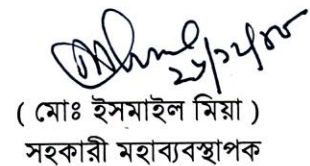 ( মোঃ ইসমাইল মিয়া )
সহকারী মহাব্যবস্থাপক